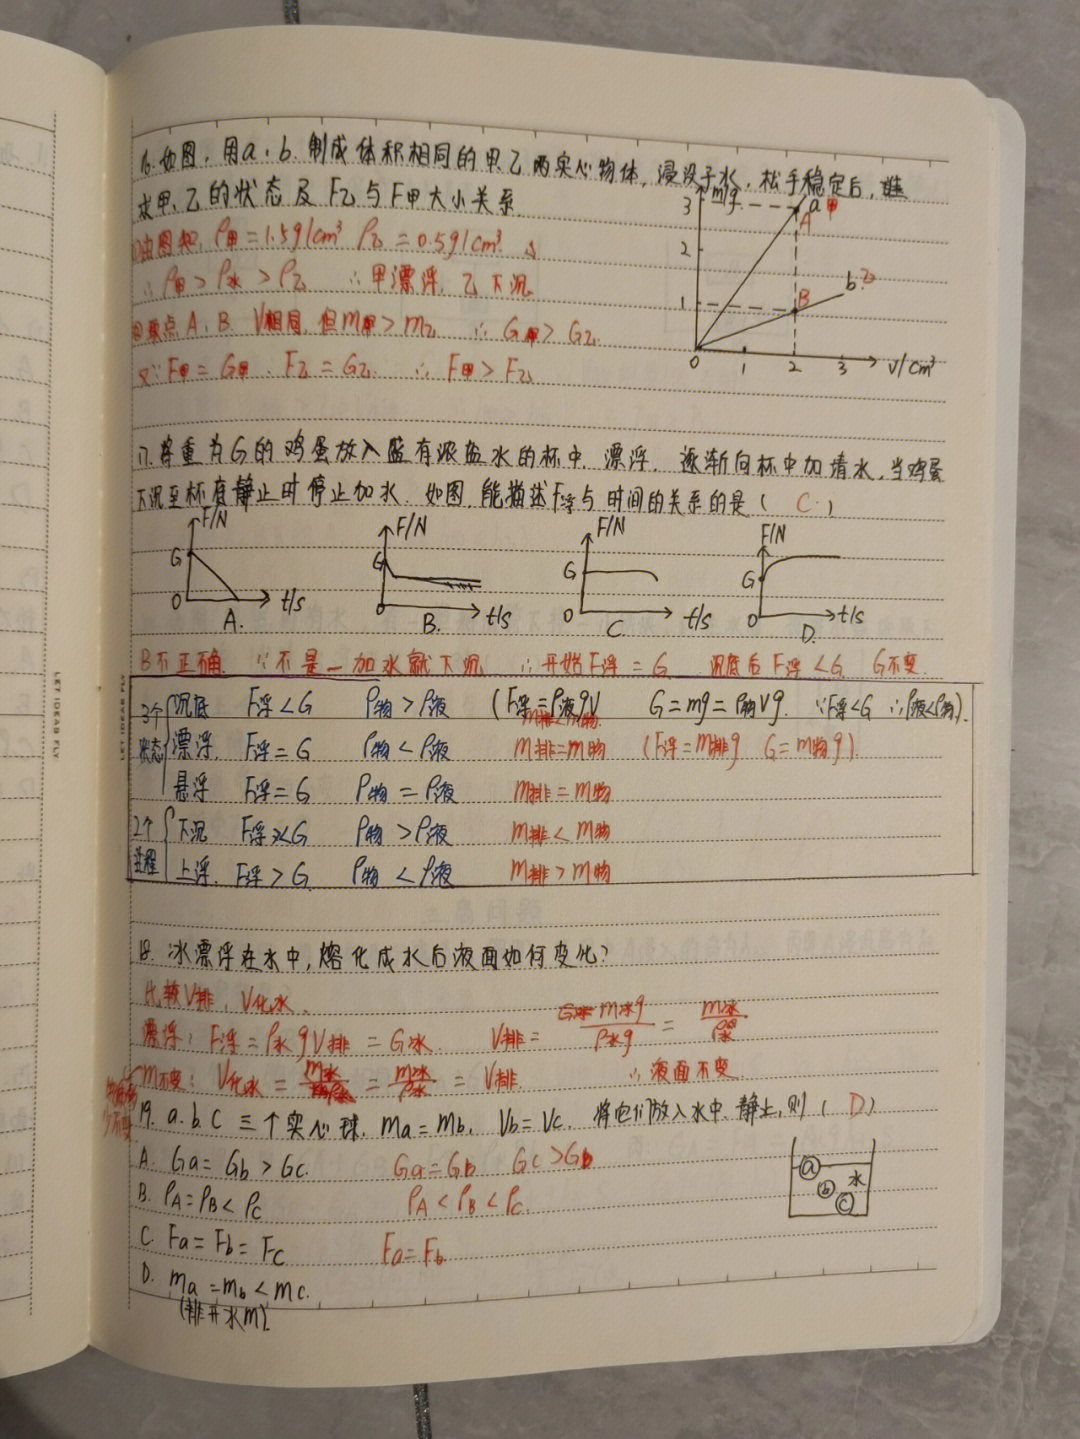 16. 如图，用a、b 制成体积相同的甲、乙两实心物体，浸没于水，松手稳定后，
求甲、乙的状态及F乙与F甲大小关系.
m/g
3
2
1
0 1 2 3 V/cm³
a 甲
A
b 乙
B
①由图知，ρ甲=1.5g/cm³ ρ乙=0.5g/cm³
∴ρ甲>ρ水>ρ乙 ∴甲漂浮，乙下沉
点A、B V相同，但m甲>m乙 ∴G甲>G乙
又∵F甲=G甲，F乙=G乙 ∴F甲>F乙
17. 将重为G的鸡蛋放入盛有浓盐水的杯中，漂浮，逐渐向杯中加清水，当鸡蛋
下沉至杯底静止时停止加水，如图，能描述F浮与时间的关系的是（ C ）
F/N G 0 t/s A.
F/N G 0 t/s B.
F/N G 0 t/s C.
F/N G 0 t/s D.
B不正确 ∵不是一加水就下沉 ∴开始F浮=G 沉底后F浮<G G不变.
3个状态
沉底 F浮<G ρ物>ρ液 (F浮=ρ液gV G=mg=ρ物Vg. ∵F浮<G ∴ρ液<ρ物).
m排<m物.
漂浮. F浮=G ρ物<ρ液 m排=m物 (F浮=m排g G=m物g).
悬浮 F浮=G ρ物=ρ液 m排=m物
2个过程
下沉 F浮<G ρ物>ρ液 m排<m物
上浮. F浮>G ρ物<ρ液 m排>m物
18. 冰漂浮在水中，熔化成水后液面如何变化？
比较V排，V化水.
漂浮：F浮=ρ水gV排=G冰. V排= m冰g/ρ水g = m冰/ρ水
m不变：V化水= m冰/ρ水 = V排. ∴液面不变.
19. a.b.c 三个实心球，ma=mb，Vb=Vc，将它们放入水中静止，则（ D ）
A. Ga=Gb>Gc. Ga=Gb Gc>Gb
B. ρA=ρB<ρC ρA<ρB<ρC.
C. Fa=Fb=Fc Fa=Fb
D. ma=mb<mc.
(排开水m).
a
b
c
水
LET IDEAS FLY